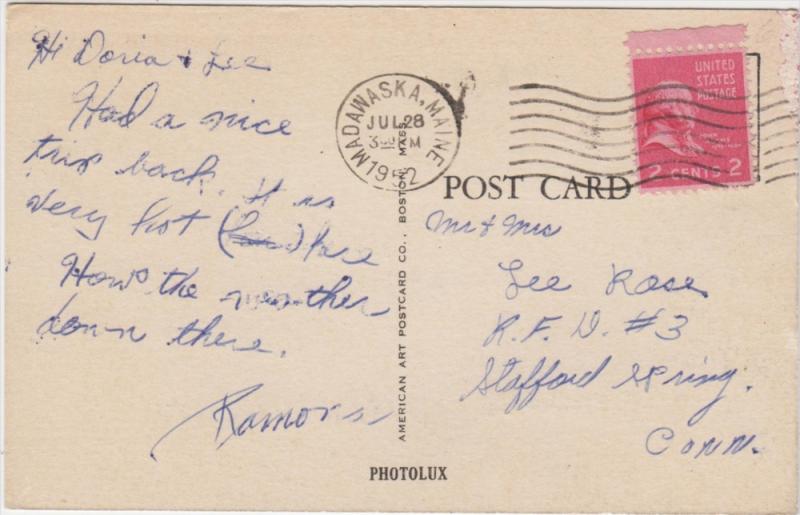 Hi Doria & Lee
Had a nice
trip back. It is
very hot ( ) here
Hows the weather
down there.
Ramona
MADAWASKA, MAINE
JUL 28
3 PM
1952
UNITED
STATES
POSTAGE
2 CENTS 2
POST CARD
Mr & Mrs
Lee Rose
R.F.D. #3
Stafford Spring.
Conn.
AMERICAN ART POSTCARD CO., BOSTON, MASS.
PHOTOLUX